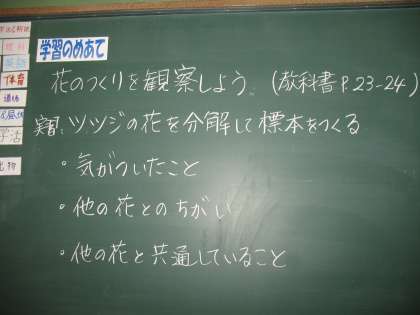 学習のめあて
花のつくりを観察しよう。(教科書P.23-24)
実習:ツツジの花を分解して標本をつくる
・気がついたこと
・他の花とのちがい
・他の花と共通していること
体育
道徳
学活